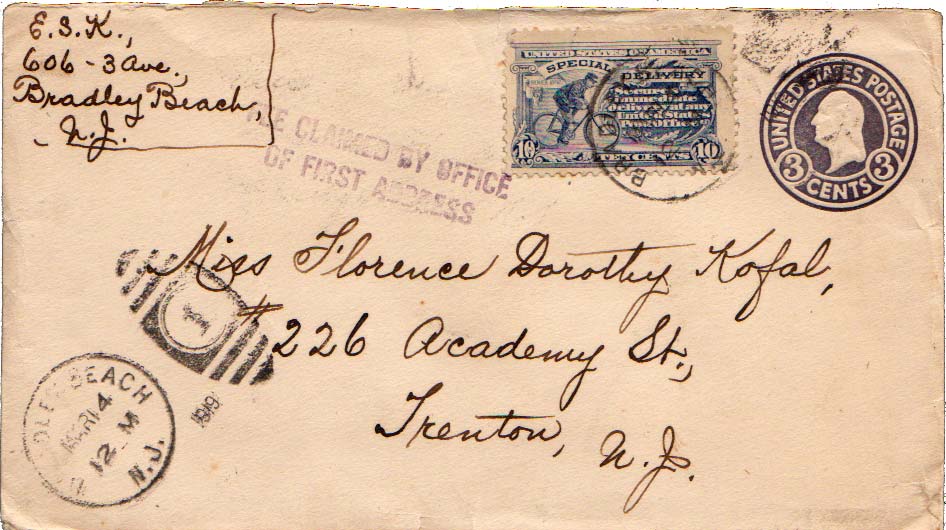 E.S.K.,
606 - 3 Ave.,
Bradley Beach,
N.J.
FEE CLAIMED BY OFFICE
OF FIRST ADDRESS
UNITED STATES OF AMERICA
SPECIAL DELIVERY
Secures
immediate
delivery at any
United States
Post Office
10 TEN CENTS 10
UNITED STATES POSTAGE
3 CENTS 3
Miss Florence Dorothy Kofal,
#226 Academy St.,
Trenton, N.J.
1
1919
BEACH
MAR 14
12 M
N.J.